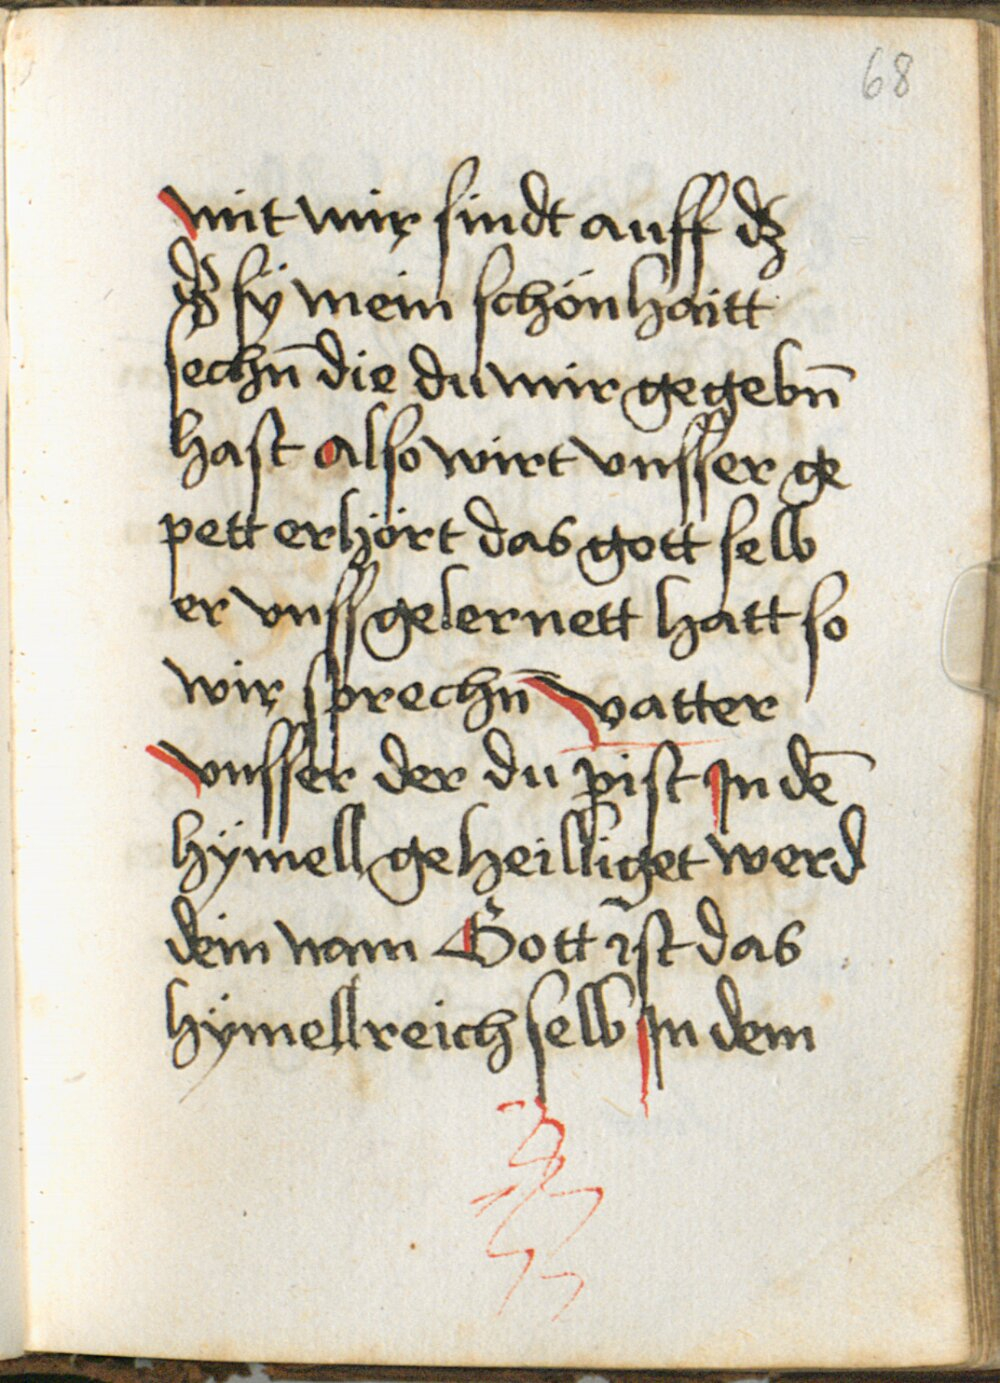 68
mit mir sindt auff dz
dz sÿ mein schönhaitt
sechn̄ die du mir gegebn̄
hast also wirt vnsser ge
pett erhört das gott selb
er vnss gelernett hatt so
wir sprechn̄ vatter
vnsser der du pist In dē
hÿmell geheilliget werd
dein nam Gott ist das
hÿmellreich selb In dem